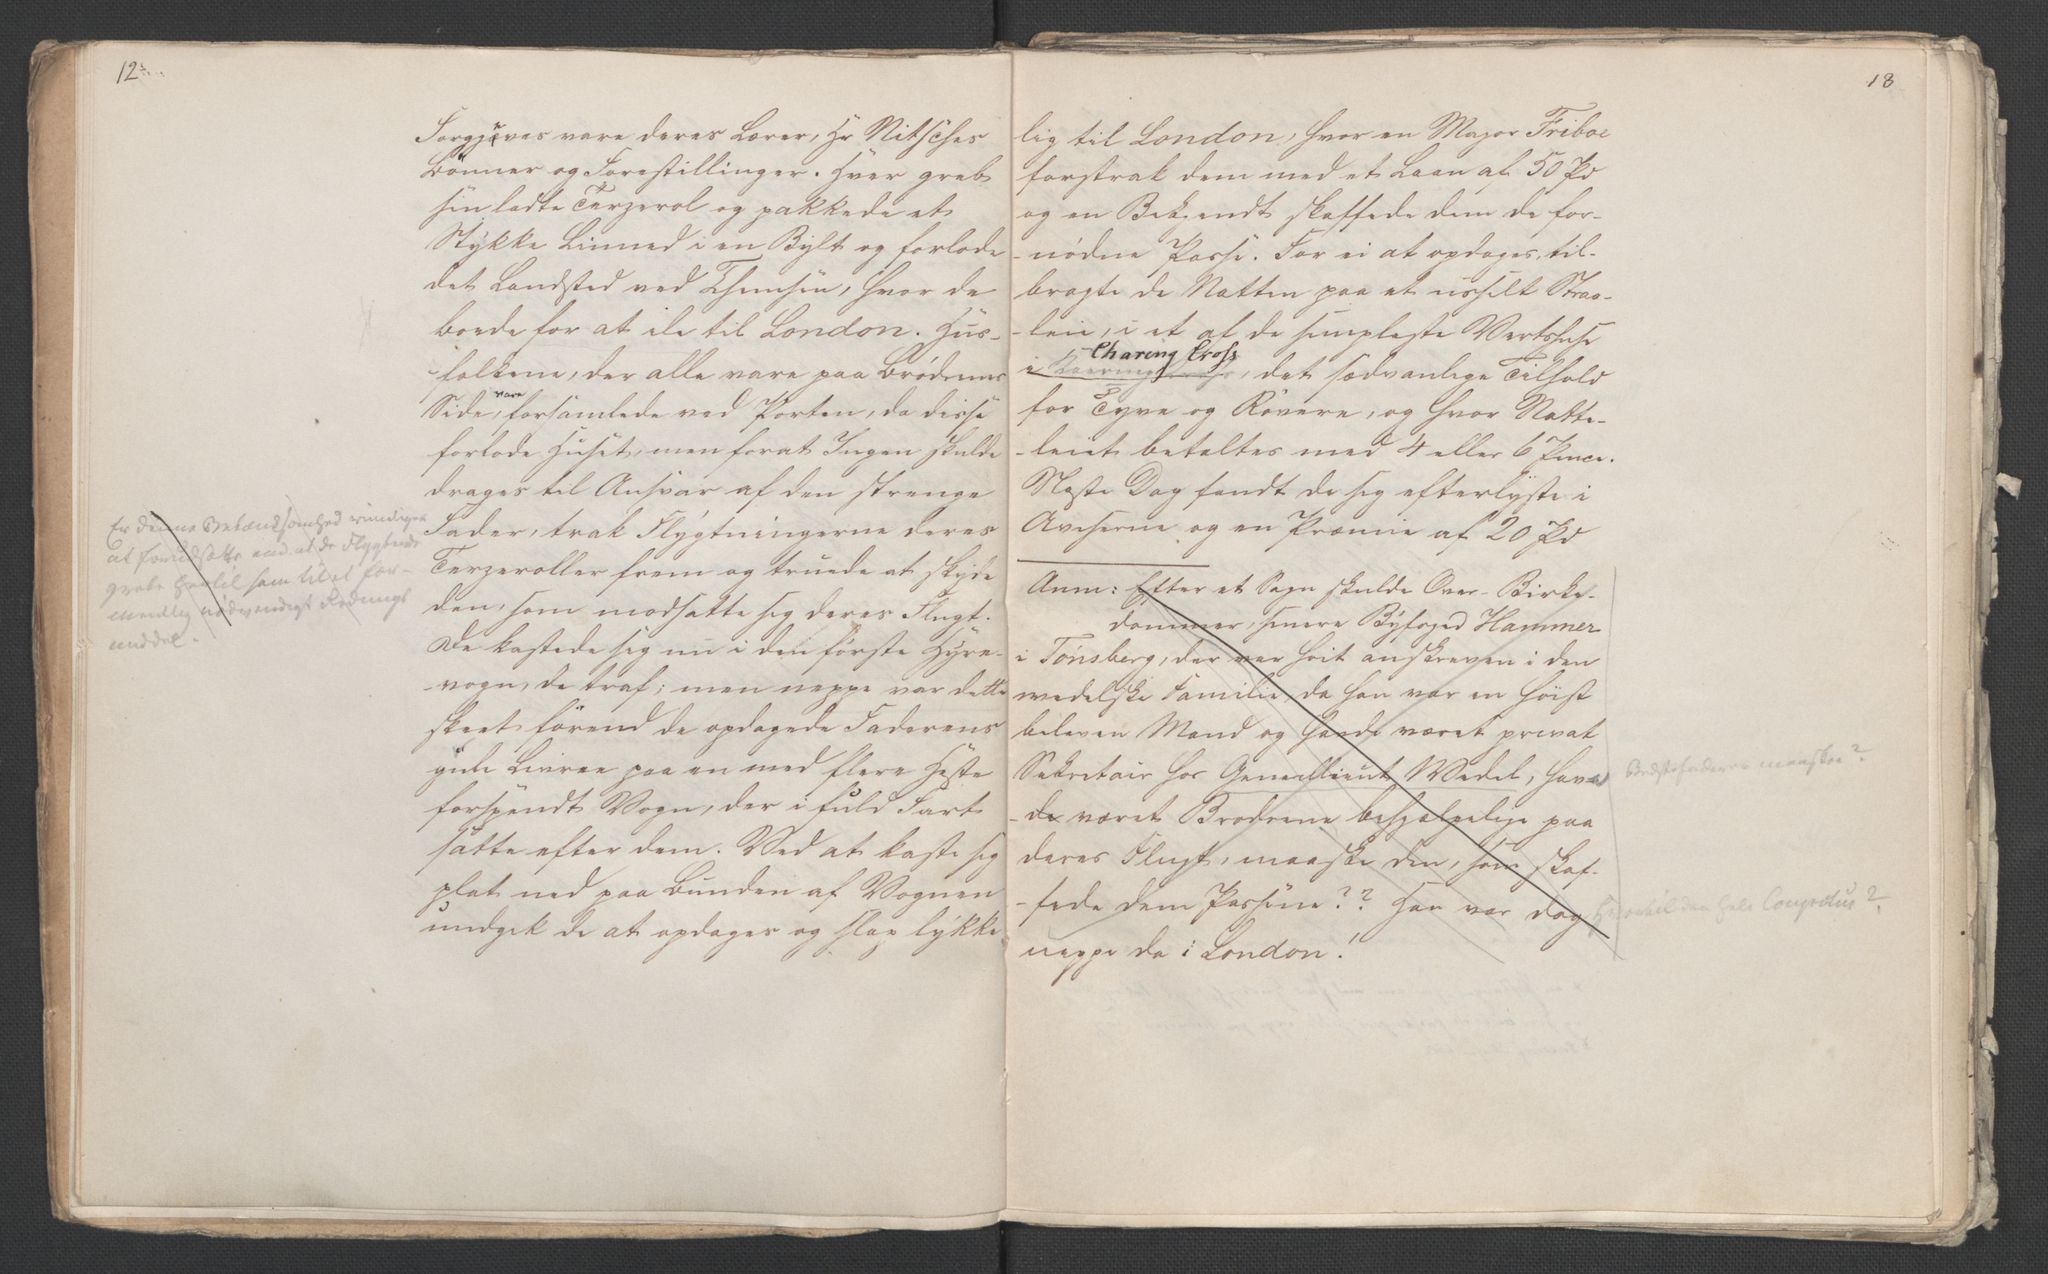 12
Forgjæves vare deres Lærer, Hr Nitsches
Bønner og Forestillinger. Hver greb
sin ladte Terzerol og pakkede et
Stykke Linned i en Bylt og forlode
det Landsted ved Themsen, hvor de
boede for at ile til London. Huus-
folkene, der alle vare paa Brødrenes
Side, vare forsamlede ved Porten, da disse
forlode Huset, men forat Ingen skulde
drages til Ansvar af den strenge
Fader, trak Flygtningerne deres
Terzeroller frem og truede at skyde
den, som modsatte sig deres Flugt.
De kastede sig nu i den første Hyre-
vogn, de traf; men neppe var dette
skeet førend de opdagede Faderens
gule Livree paa en med flere Heste
forspændt Vogn, der i fuld Fart
satte efter dem. Ved at kaste sig
plat ned paa Bunden af Vognen
undgik de at opdages og slap lykke
Er denne Betænksomhed rimeligere
at forudsætte end at de Flygtende
grebe hertil som til et for-
menlig nødvendigt Rednings
middel.
18
lig til London, hvor en Major Friboe
forstrak dem med et Laan af 50 Pd
og en Bekjendt skaffede dem de for-
-nødne Passe. For ei at opdages, til-
bragte de Natten paa et usselt Straa-
-leie, i et af de simpleste Vertshuse
i Charing Cross, det sædvanlige Tilhold
for Tyve og Røvere, og hvor Natte-
-leiet betaltes med 4 eller 6 Pence.
Næste Dag fandt de sig efterlyste i
Aviserne og en Præmie af 20 Pd
Anm: Efter et Sagn skulde Over-Birke-
dommer, senere Byfoged Hammer
i Tønsberg, der var høit anskreven i den
wedelske Familie, da han var en høist
beleven Mand og havde været privat
Sekretair hos Generallieut Wedel, hav-
-de været Brødrene behjælpelige paa
deres Flugt, maaske den, som skaf-
-fede dem Passene?? Han var dog
neppe da i London!
Bedstefaderen maaskee?
Hvortil den hele Conjectur?